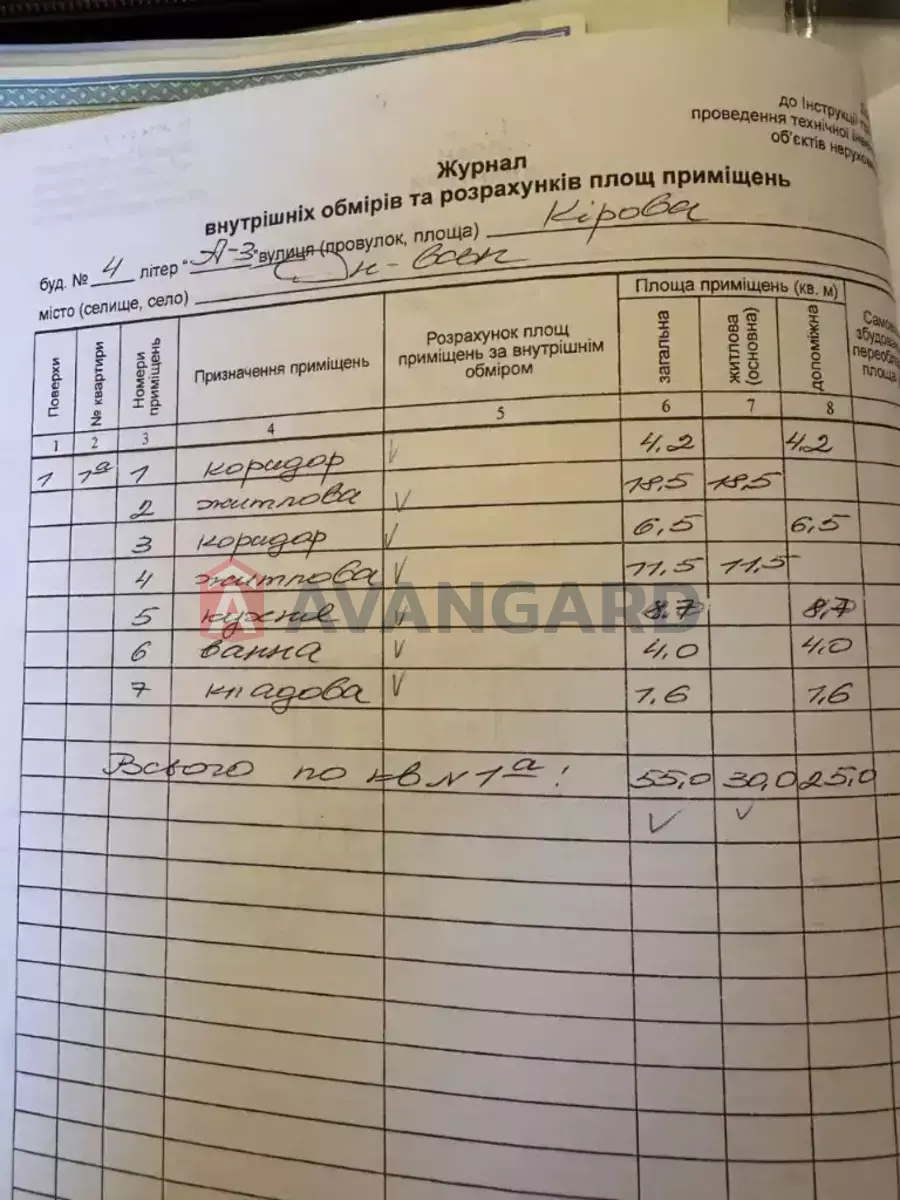 до Інструкції
проведення технічної
об'єктів нерухом
Журнал
внутрішніх обмірів та розрахунків площ приміщень
буд. № 4 літер "А-3" вулиця (провулок, площа) Кірова
місто (селище, село)
Площа приміщень (кв. м)
Поверхи № квартири Номери приміщень Призначення приміщень Розрахунок площ приміщень за внутрішнім обміром загальна житлова (основна) допоміжна
1 2 3 4 5 6 7 8
1 1а 1 коридор 4.2 4.2
2 житлова 18,5 18,5
3 коридор 6,5 6,5
4 житлова 11,5 11,5
5 кухня 8.7 8,7
6 ванна 4.0 4.0
7 кладова 1.6 1,6
Всього по кв N 1а: 55,0 30,0 25,0
AVANGARD